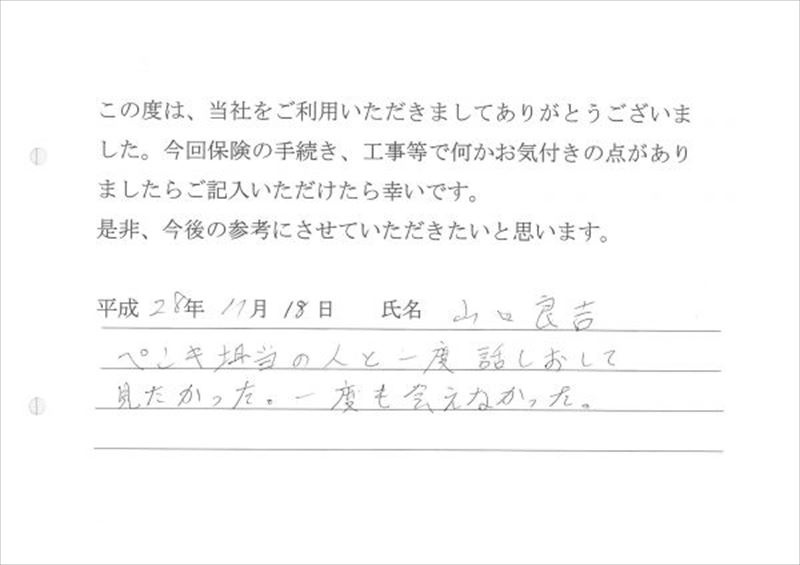 この度は、当社をご利用いただきましてありがとうございま
した。今回保険の手続き、工事等で何かお気付きの点があり
ましたらご記入いただけたら幸いです。
是非、今後の参考にさせていただきたいと思います。
平成 28年 11月 18日 氏名 山口良吉
ペンキ担当の人と一度話しおして
見たかった。一度も会えなかった。